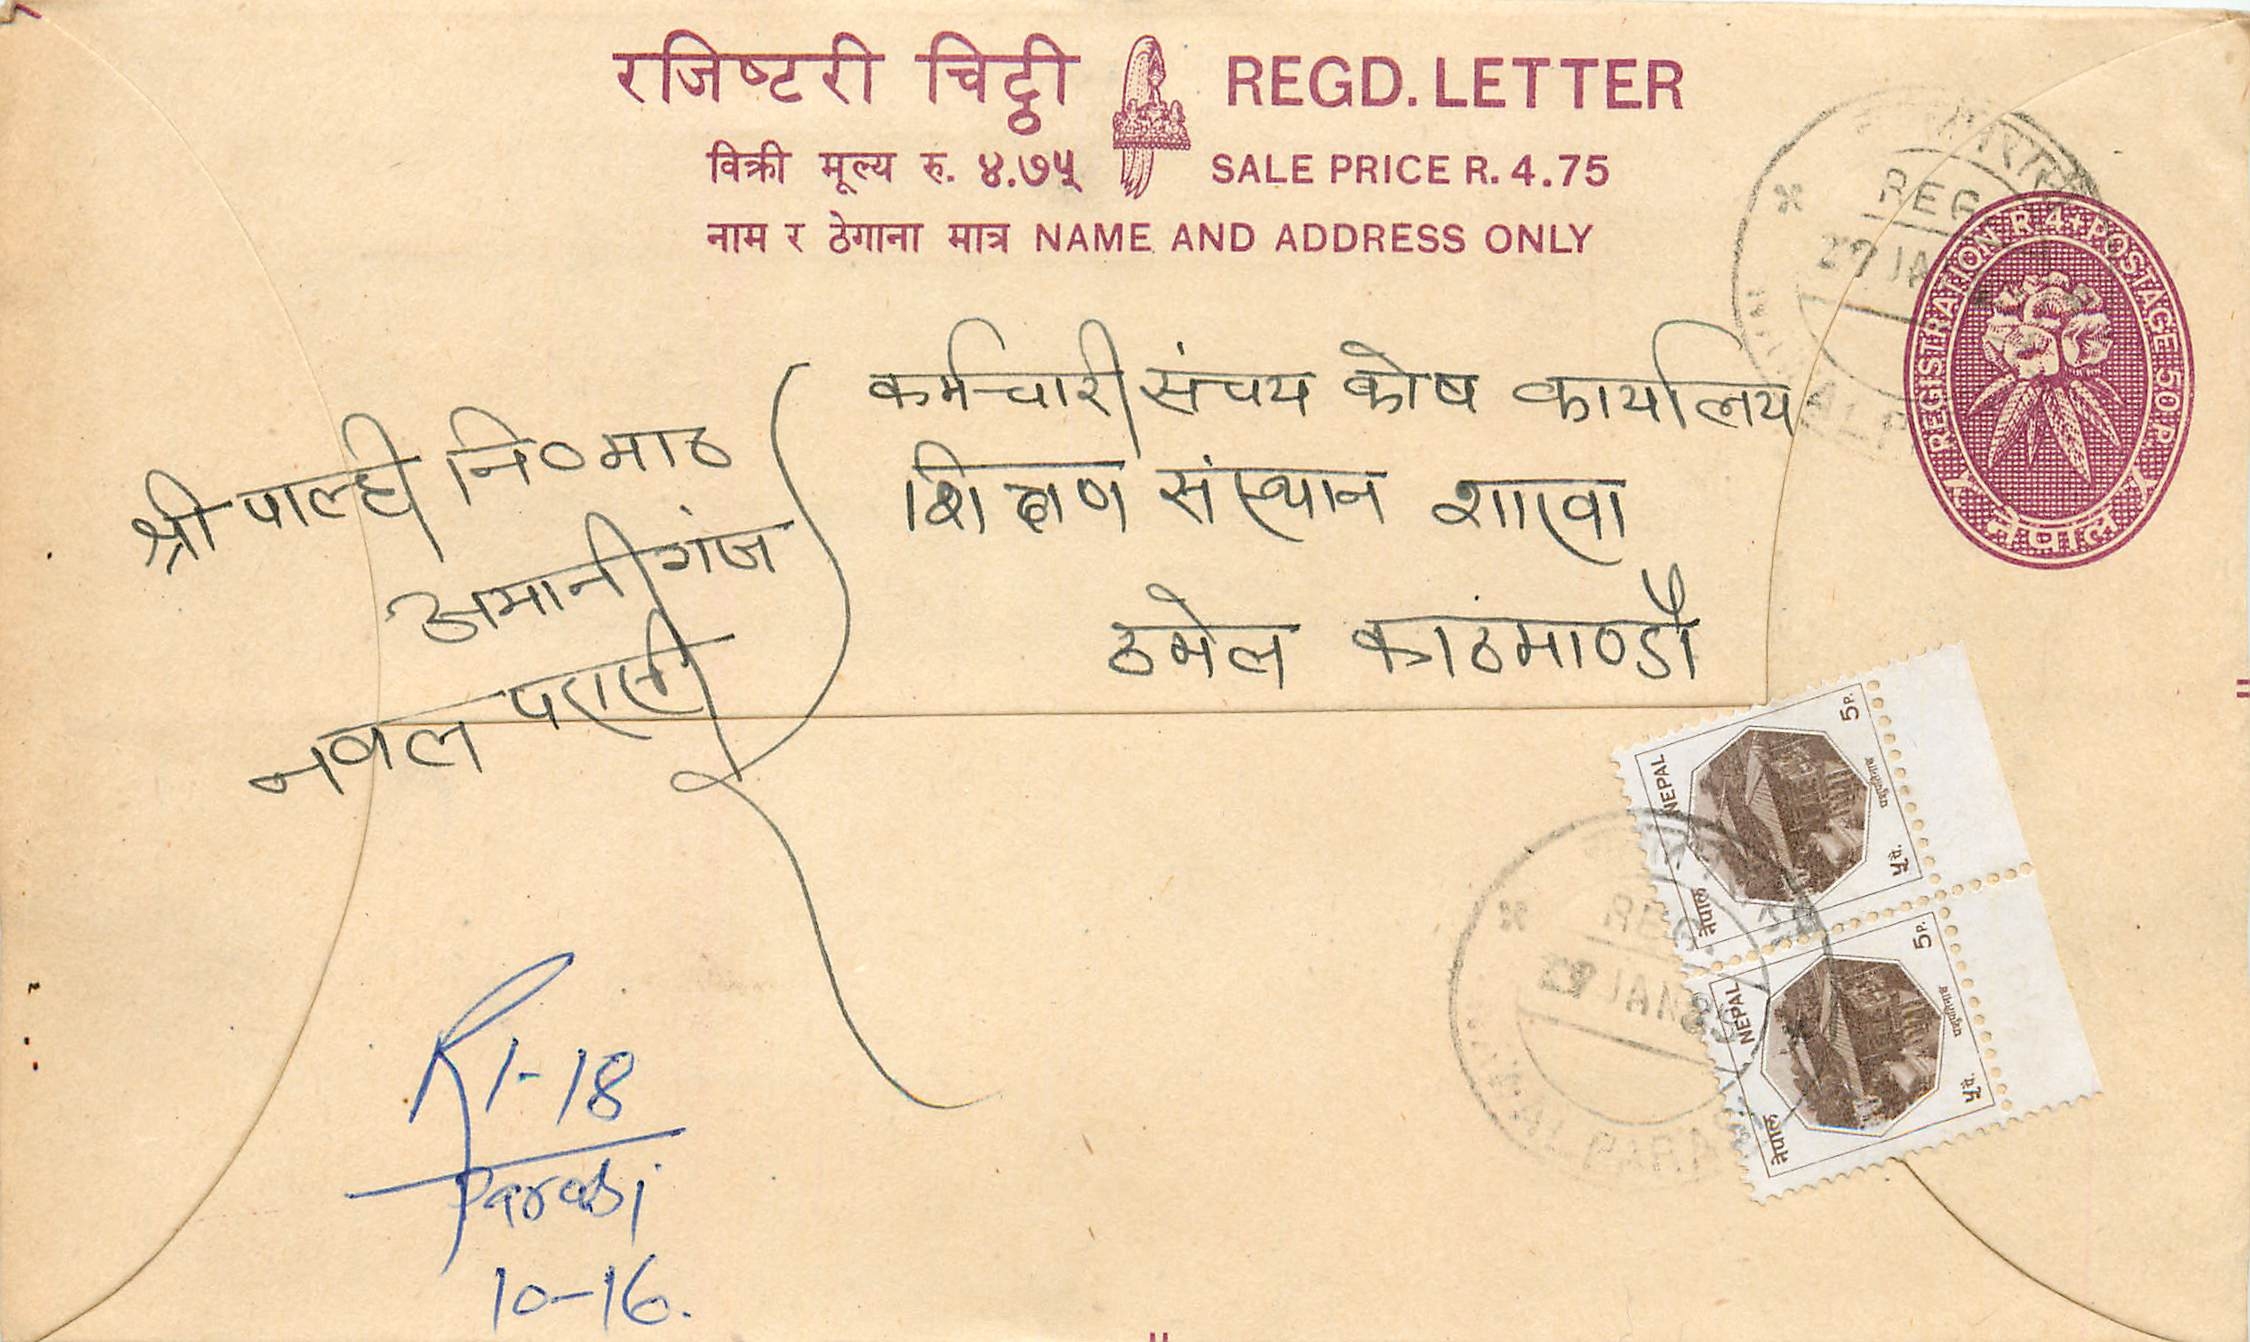 रजिष्टरी चिट्ठी REGD. LETTER
विक्री मूल्य रु. ४.७५ SALE PRICE R. 4.75
नाम र ठेगाना मात्र NAME AND ADDRESS ONLY
REGISTRATION R 4 + POSTAGE 50 P.
नेपाल
कर्मचारी संचय कोष कार्यालय
शिक्षण संस्थान शाखा
ठमेल काठमाण्डौ
श्री पाल्ही नि०मा०
अमानीगंज
नवल परासी
5P.
NEPAL
नेपाल
५ पै.
5P.
NEPAL
नेपाल
५ पै.
R 1-18
Parasi
10-16.